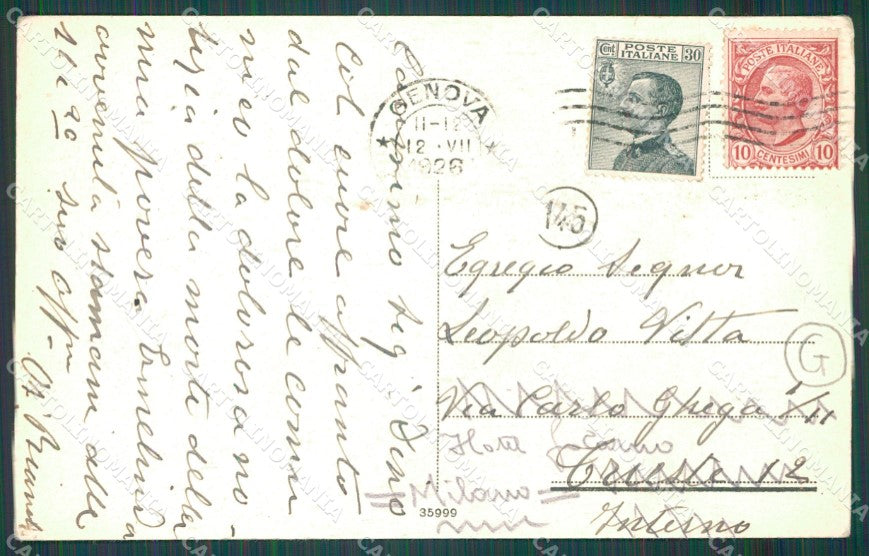 Carissimo Sig. Dino
Col cuore affranto
dal dolore le comu
nico la dolorosa no-
tizia della morte della
mia povera Ermelinda
avvenuta stamani alle
16 e 20 suo aff.
GENOVA
11-12
12 · VII
1926
Cent 30
POSTE
ITALIANE
POSTE ITALIANE
10 CENTESIMI 10
145
Egregio Signor
Leopoldo Vitta
G
Via Carlo Ghega
Hotel
Trieste 12
= Milano =
Interno
35999
CARTOLINOMANIA